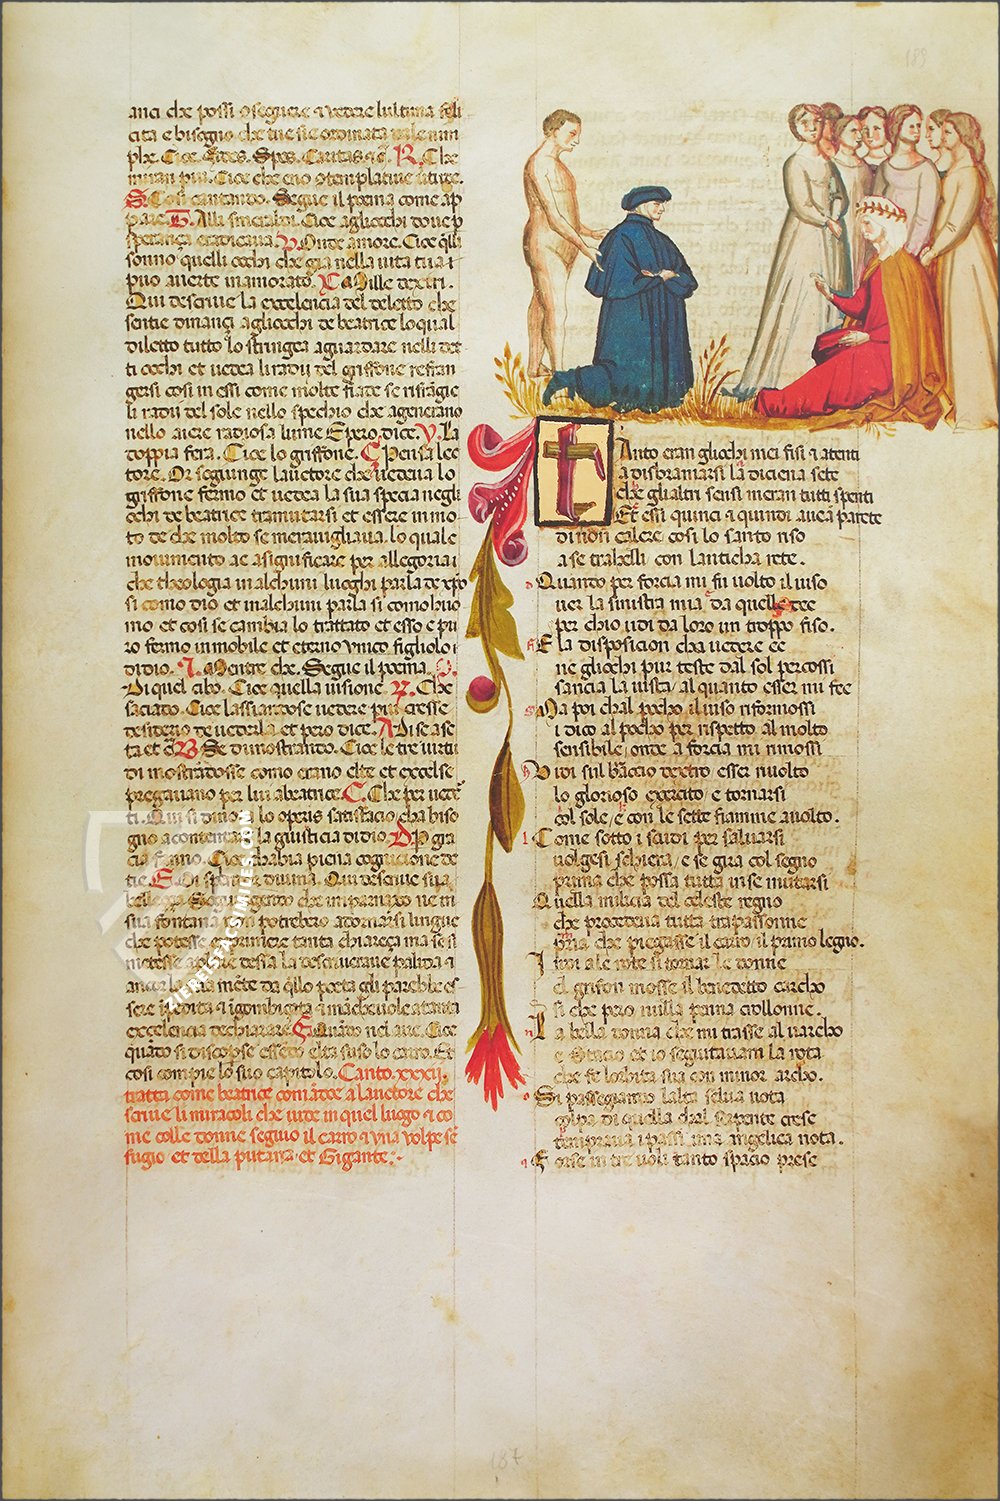 anci che possi
cita e bisogno che tu sie ordinata
phe. Cioe. fides. Spes. Caritas R. Che
miran piu. Cioe che
S Cosi cantando. Segue il poema come ap
pare. D. Alli smeraldi. Cioe agliocchi doue
V. Onde amore. Cioe
sonno quelli occhi che gia nella uita tua
puo auerte inamorato. C A Mille dexiri.
Qui descriue la excelencia del deletto che
sentie dinançi agliocchi de beatrice loqual
diletto tutto lo stringea aguardare nelli
ti occhi et uedea li radii del griffone refran
gersi cosi in essi come molte fiate se rifrãgie
li radii del sole nello spechio che agenerano
nello aiere radiosa lume Epero dice. V. La
doppia fera. Cioe lo griffone. C Pensa lec
tore. Or segiunge lauctore che uedeua lo
griffone fermo et uedea la sua specia negli
ochi de beatrice tramutarsi et essere in mo
to de che molto se merauigliaua. lo quale
mouimento ae asignificare per allegoria i
che theologia in alchuni luoghi parla de xpo
si como dio et in alchuni parla si como huo
mo et cosi se cambia lo trattato et esso e pu
ro fermo inmobile et eterno unico figliolo
di dio. I. Mentre che. Segue il poema.
Di quel cibo. Cioe quella uisione. R. Che
saciado. Cioe lassiandose uedere piu cresse
desiderio de uederla et pero dice. A Di se ase
ta et c̃ B Se dimostrando. Cioe le tre uirtu
di mostrãdosse como erano elte et excelse
pregauano per lui abeatrice. C. Che per uede
ti. Qui si dimo lo operis satisfacio cha biso
gno acontentare la giusticia di dio. D P gra
cia fanno. Cioe chabia piena cognicione de
te. E Di splendor diuina. Qui descriue sua
belleça Segue agendo che in parnaxo ne in
sua fontana non potrebero adornarsi lingue
che potesse exprimere tanta chiareça ma se si
metesse aplore dessa la descriuerave palida
ancor la sua mẽte da qllo poeta gli parebbe es
sere
excelencia dechiarare. Quãdo nel aire. Cioe
quãdo si discopse essẽdo ella suso lo carro. Et
cosi compie lo suo capitolo. Canto. xxxii.
tratta come beatrice comãdoe a lauctore che
scriue li miracoli che uide in quel luogo co
me colle donne seguio il carro una uolpe sẽ
fugio et della putana et Gigante.
Tanto eran gliochi mei fisi atenti
a disbramarsi la diciena sete
che gli altri sensi meran tutti spenti
Et essi quinci quindi auean parete
di non calere cosi lo santo riso
a se trahelli con lanticha rete.
Quando per forcia mi fu uolto il uiso
uer la sinistra mia da quelle dee
per chio udi da loro un troppo fiso.
E la disposicion cha uedere ee
ne gliochi pur teste dal sol percossi
sancia la uista / al quanto esser mi fee
Ma poi chal pocho il uiso riformossi
i dico al pocho per rispetto al molto
sensibile / onde a forcia mi rimossi
Vidi sul braccio dextro esser riuolto
lo glorioso exercito / e tornarsi
col sole / e con le sette fiamme auolto.
Come sotto i scudi per saluarsi
uolgesi schiera / e se gira col segno
prima che possa tutta in se mutarsi
Quella milicia del celeste regno
che procedeua tutta trapassonne
pria che piegasse il carro / il primo legno.
Indi a le rote si tornar le donne
el grifon mosse il benedetto carcho
si che pero nulla penna crollonne.
La bella donna che mi trasse al uarcho
e Stacio et io seguitauam la rota
che fe lorbita sua con minor archo.
Si passegiando lalta selua uota
colpa di quella chal serpente crese
temperaua i passi una angelica nota.
Forse in tre uoli tanto spacio prese
189
187
ZIEREISFACSIMILES.COM